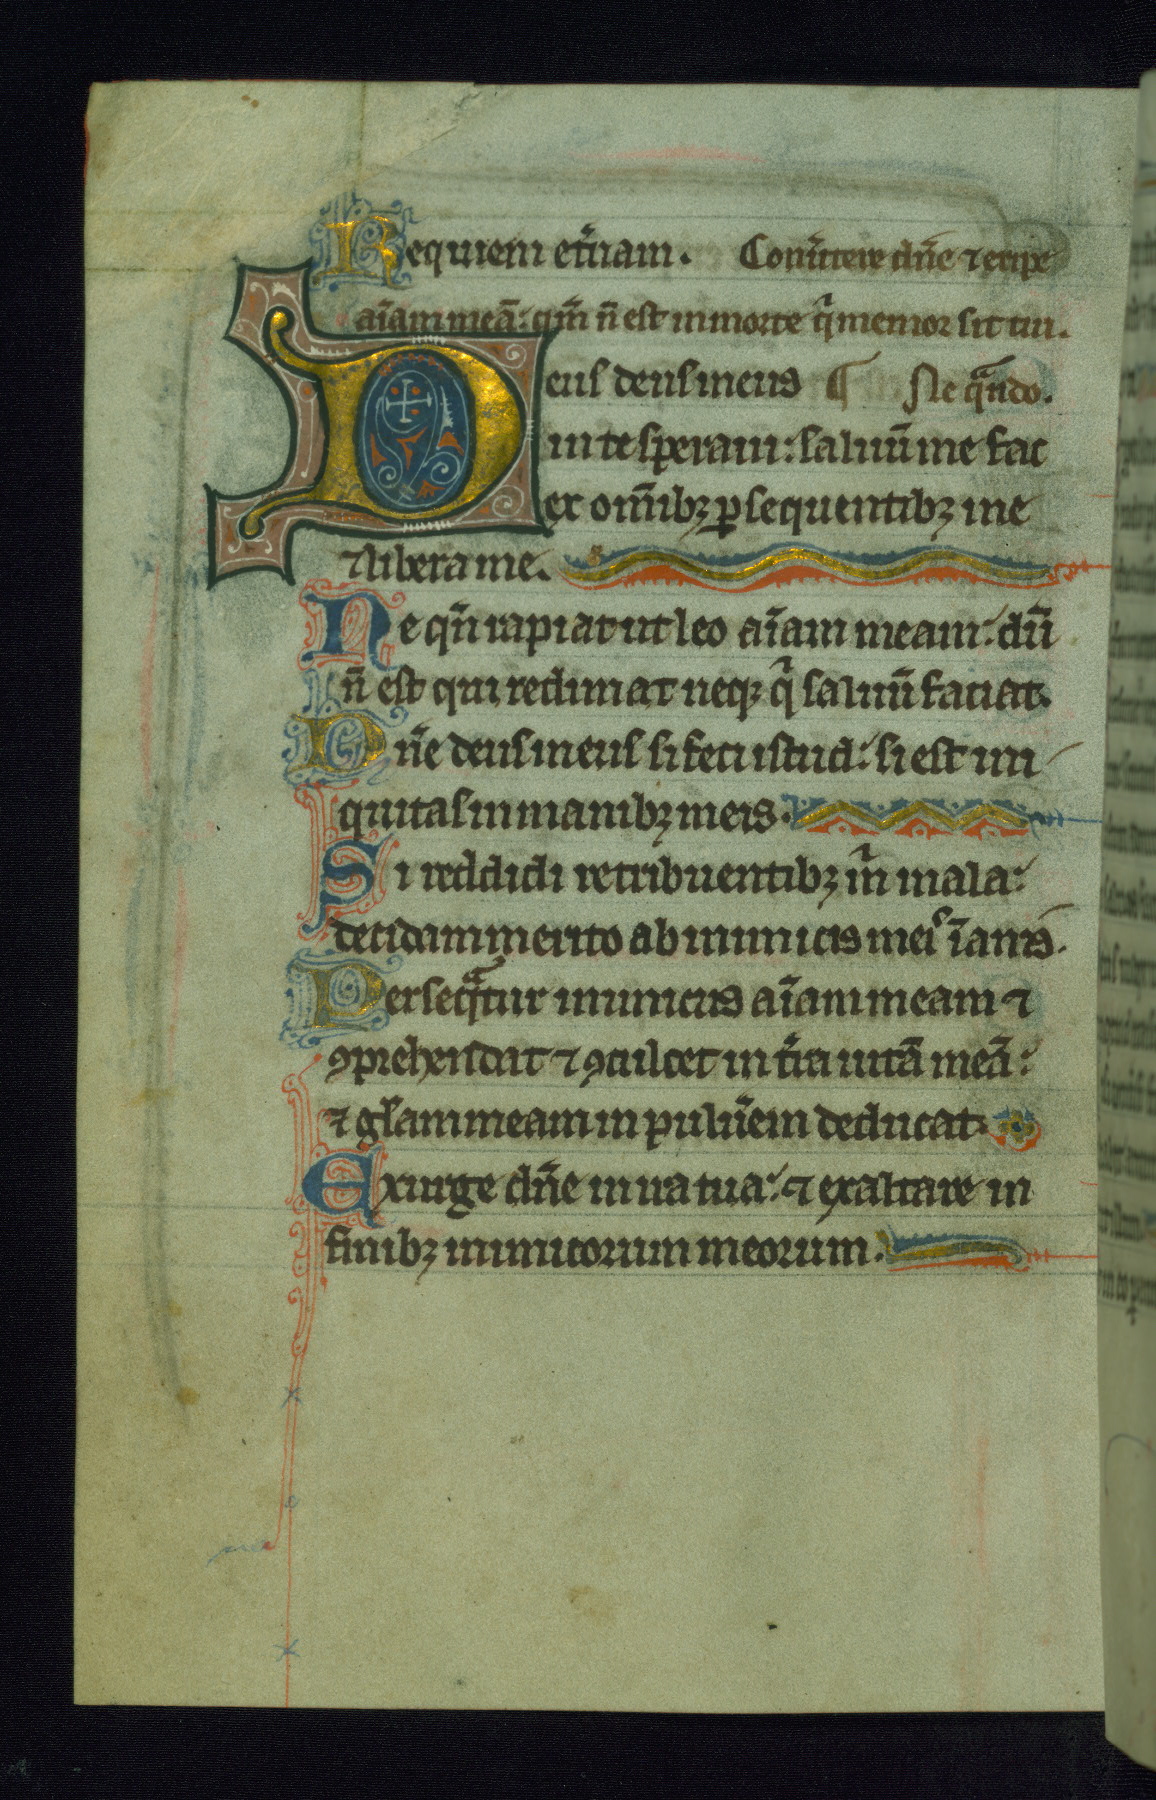 Requiem et̄nam. Conūtere dn̄e ⁊ eripe
aīam meā: qm̄ n̄ est in morte qi memor sit tui.
Deus deus meus ¶ Ne qn̄do.
in te speraui: saluū me fac
ex omībꝫ ꝑsequentibꝫ me
⁊ libera me.
Ne qn̄ rapiat ut leo aīam meam: dū
n̄ est qui redimat neqꝫ qi saluū faciat.
Dn̄e deus meus si feci istud: si est ini
quitas in manibꝫ meis.
Si reddidi retribuentibꝫ m̄ mala:
decidam merito ab inimicis meis īanis.
Perseqatur inimicus aīam meam ⁊
ꝯprehendat ⁊ ꝯculcet in tr̄a uitā meā:
⁊ gl̄am meam in puluēm deducat.
Exurge dn̄e in ira tua: ⁊ exaltare in
finibꝫ inimicorum meorum.